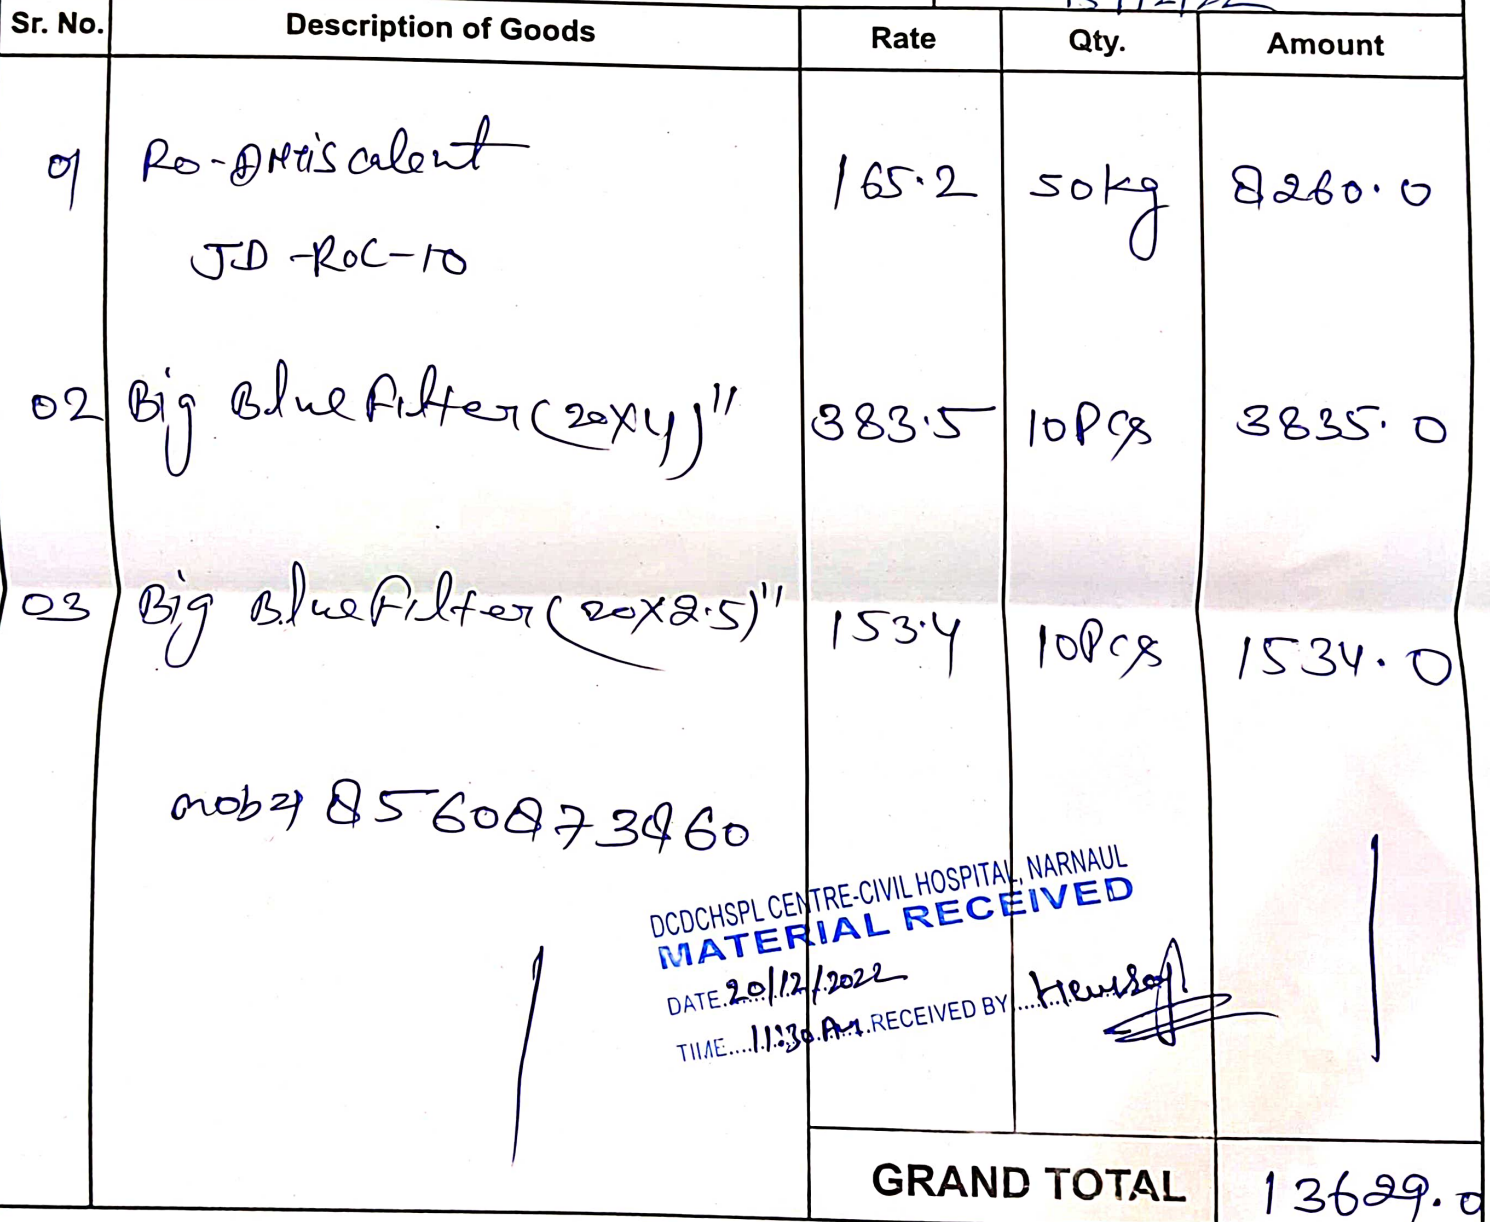 Sr. No. Description of Goods Rate Qty. Amount
01 Ro-Antiscalent 165.2 50kg 8260.0
JD-ROC-10
02 Big Blue Filter (20x4)" 383.5 10Pcs 3835.0
03 Big Blue Filter (20x2.5)" 153.4 10Pcs 1534.0
8560873960
DCDCHSPL CENTRE-CIVIL HOSPITAL, NARNAUL
MATERIAL RECEIVED
DATE.20/12/2022
TIME....11:30 Am.RECEIVED BY....
GRAND TOTAL 13629.0